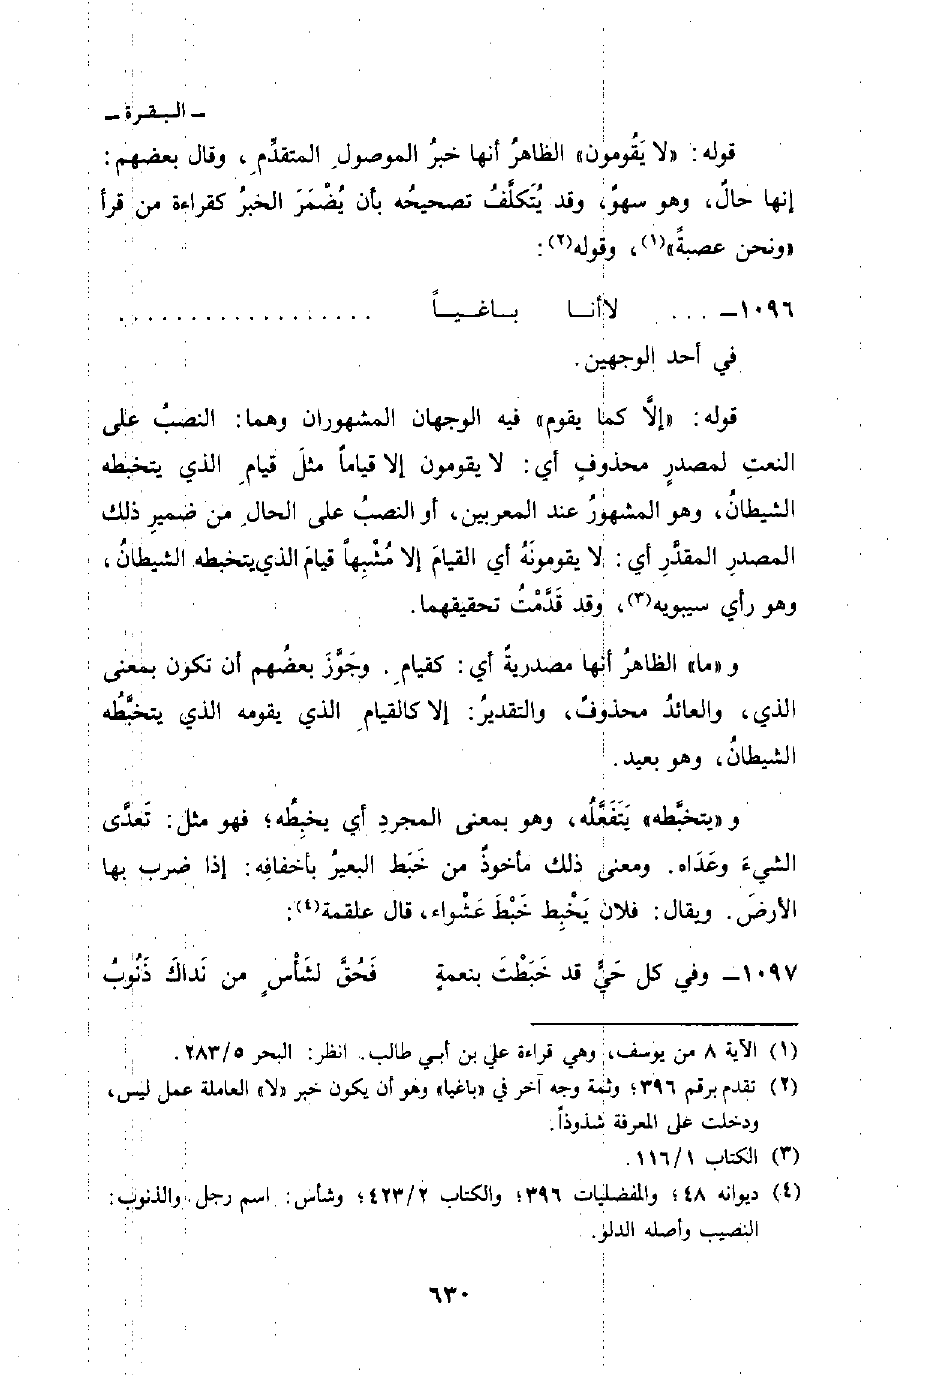 ـ البقرة ـ
قوله: «لا يَقُومون» الظاهرُ أنها خبرُ الموصولِ المتقدِّم، وقال بعضهم:
إنها حالٌ، وهو سهوٌ، وقد يُتَكلَّفُ تصحيحُه بأن يُضْمَرَ الخبرُ كقراءة من قرأ
«ونحن عصبةً»(١)، وقوله(٢):
١٠٩٦ـ ... لاأنـا بـاغيـاً .................
في أحد الوجهين.
قوله: «إلَّا كما يقوم» فيه الوجهان المشهوران وهما: النصبُ على
النعتِ لمصدرٍ محذوفٍ أي: لا يقومون إلا قياماً مثلَ قيامِ الذي يتخبطه
الشيطانُ، وهو المشهورُ عند المعربين، أو النصبُ على الحالِ من ضميرِ ذلك
المصدرِ المقدَّرِ أي: لا يقومونَهُ أي القيامَ إلا مُشْبِهاً قيامَ الذي يتخبطه الشيطانُ،
وهو رأي سيبويه(٣)، وقد قَدَّمْتُ تحقيقهما.
و «ما» الظاهرُ أنها مصدريةٌ أي: كقيامِ. وجَوَّزَ بعضُهم أن تكون بمعنى
الذي، والعائدُ محذوفٌ، والتقديرُ: إلا كالقيامِ الذي يقومه الذي يتخبَّطُه
الشيطانُ، وهو بعيد.
و «يتخبَّطه» يَتَفَعَّلُه، وهو بمعنى المجردِ أي يخبِطُه؛ فهو مثل: تَعَدَّى
الشيءَ وعَدَاه. ومعنى ذلك مأخوذٌ من خَبَط البعيرُ بأخفافِه: إذا ضرب بها
الأرضَ. ويقال: فلان يَخْبِط خَبْطَ عَشْواء، قال علقمة(٤):
١٠٩٧ـ وفي كل حَيٍّ قد خَبَطْتَ بنعمةٍ فَحُقَّ لشَأْسٍ من نَداكَ ذَنُوبُ
(١) الآية ٨ من يوسف، وهي قراءة علي بن أبي طالب. انظر: البحر ٢٨٣/٥.
(٢) تقدم برقم ٣٩٦؛ وثمة وجه آخر في «باغيا» وهو أن يكون خبر «لا» العاملة عمل ليس،
ودخلت على المعرفة شذوذاً.
(٣) الكتاب ١١٦/١.
(٤) ديوانه ٤٨؛ والمفضليات ٣٩٦؛ والكتاب ٤٢٣/٢؛ وشأس: اسم رجل، والذنوب:
النصيب وأصله الدلو.
٦٣٠